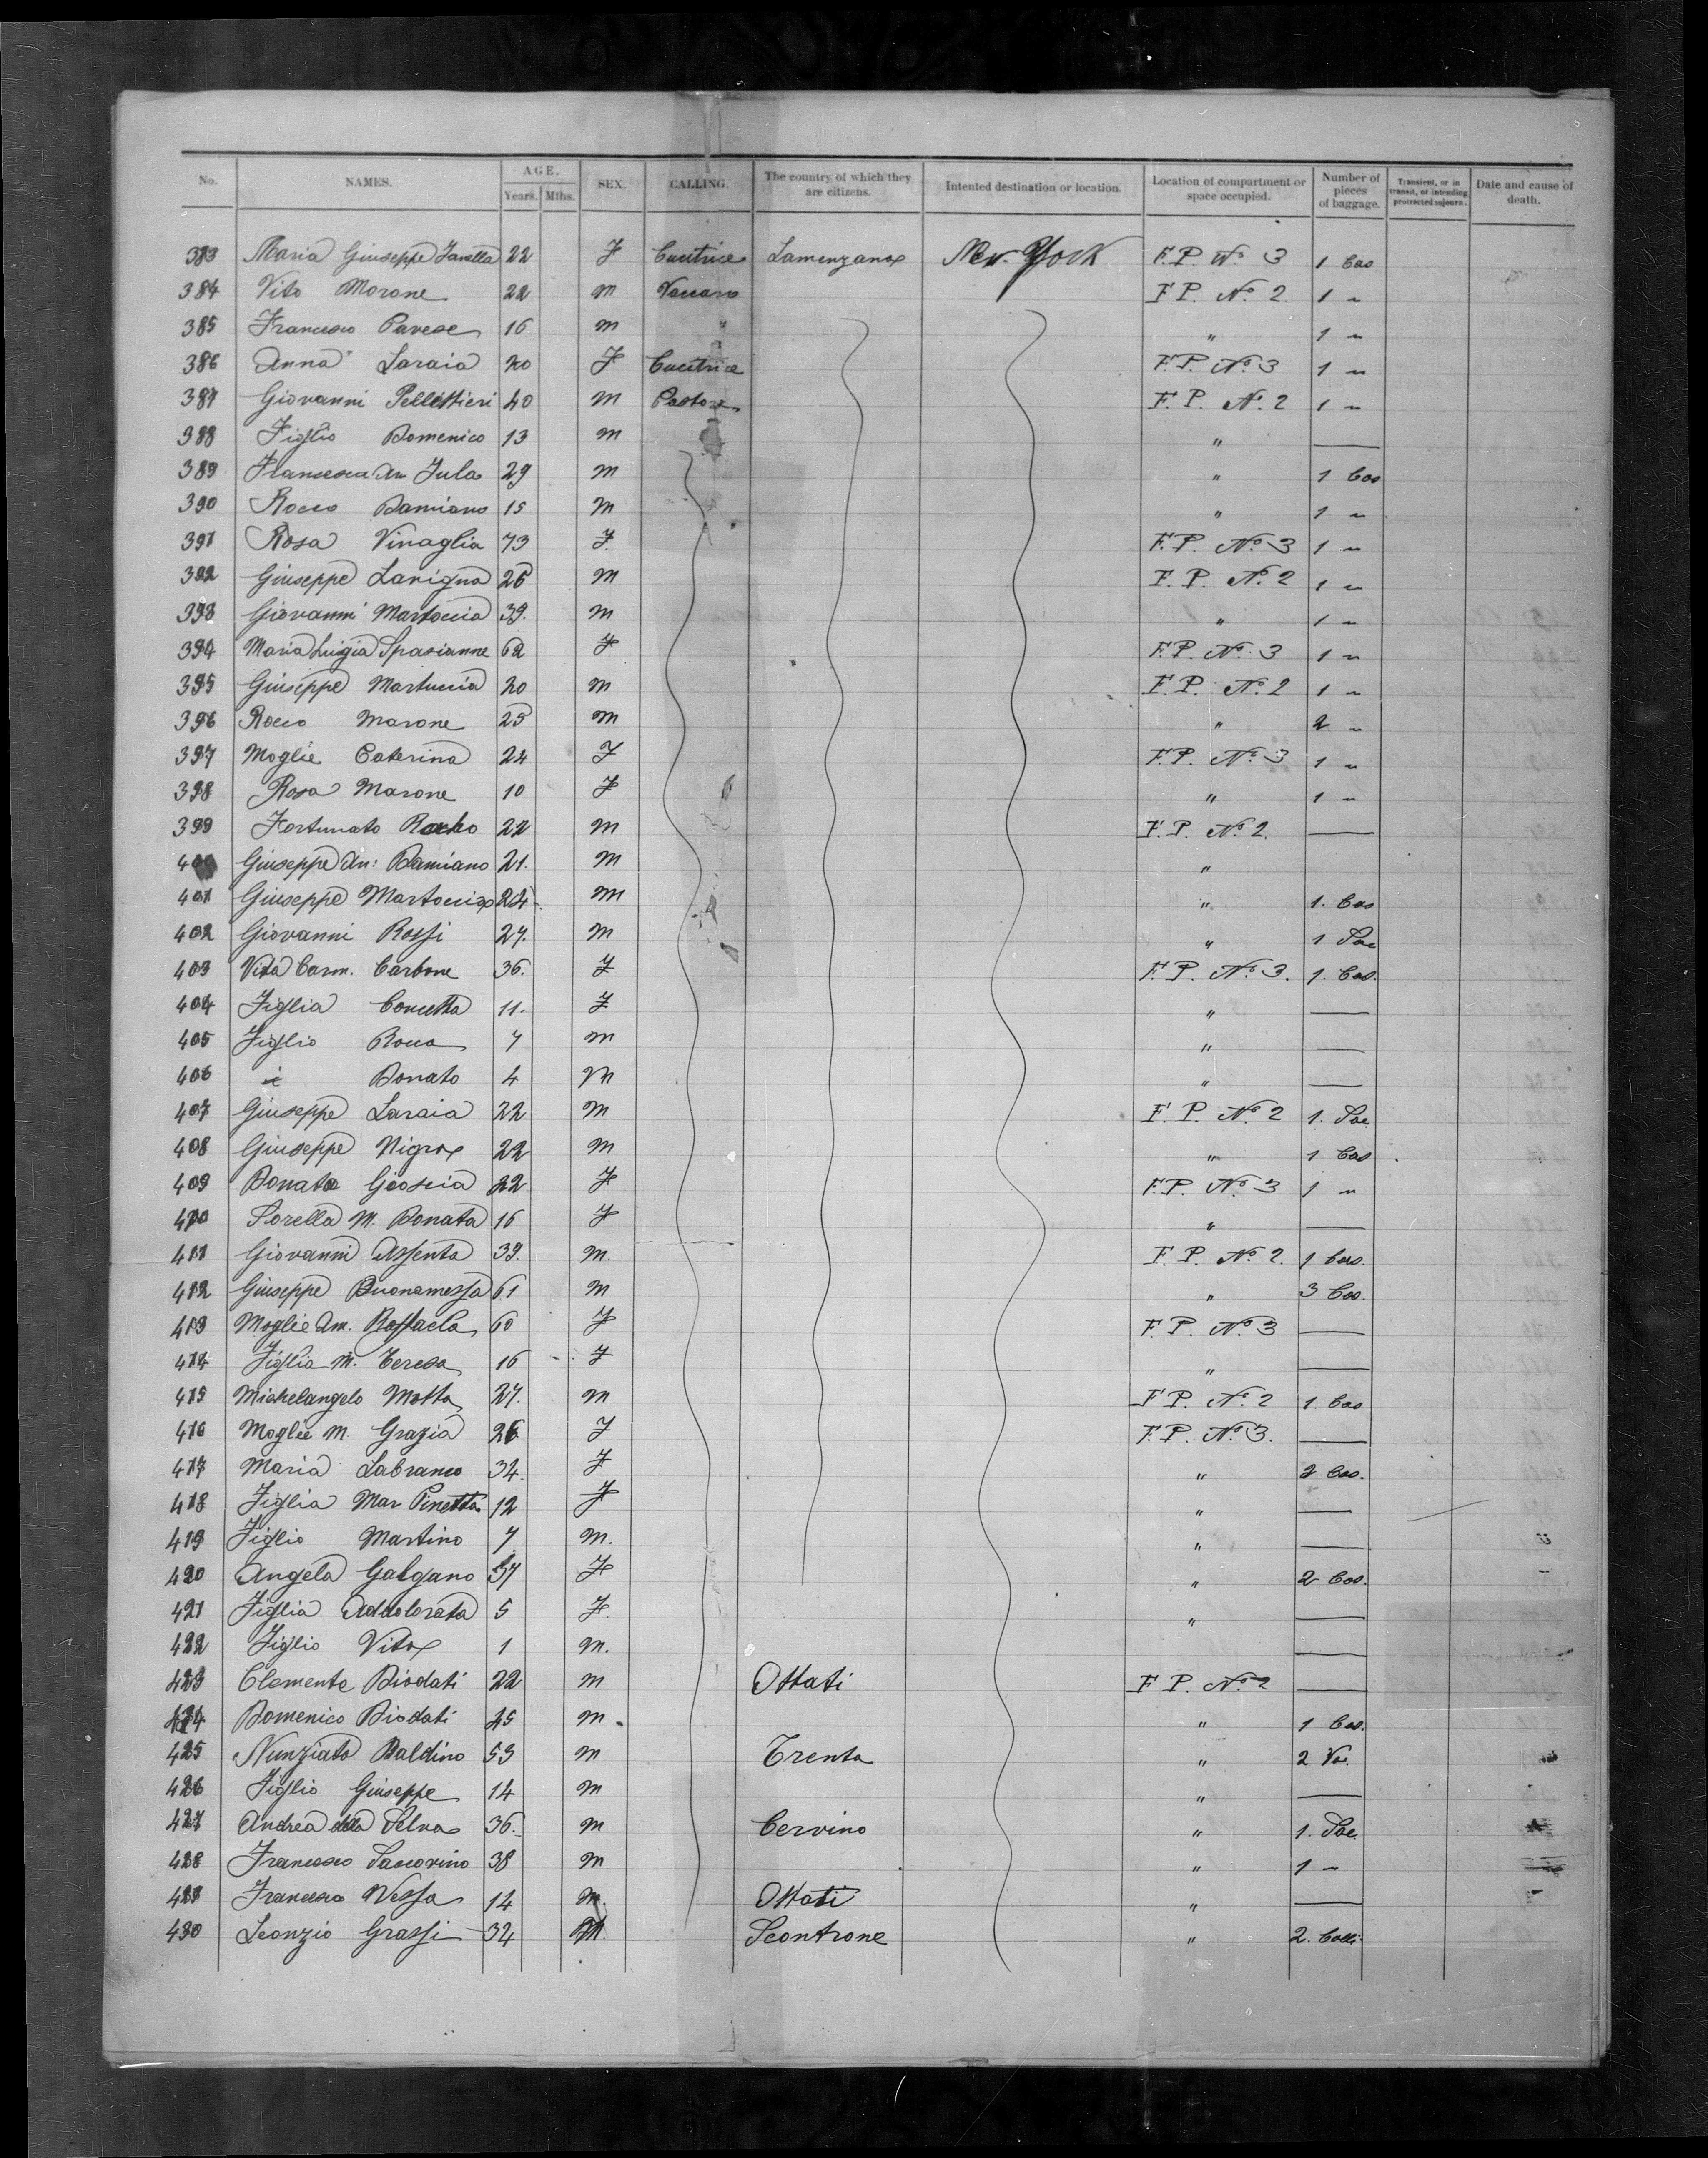 No. NAMES. AGE. Years. Mths. SEX. CALLING. The country of which they are citizens. Intented destination or location. Location of compartment or space occupied. Number of pieces of baggage. Transient, or in transit, or intending protracted sojourn. Date and cause of death.
383 Maria Giuseppe 22 F Cucitrice New-York F.P. No. 3 1 Cas
384 Vito Morone 22 M F P. No. 2. 1 "
385 Francesco Pavese 16 M " " 1 "
386 Anna Laraia 20 F Cucitrice F.P. No. 3 1 "
387 Giovanni Pellettieri 40 M Pastore F.P. No. 2 1 "
388 Figlio Domenico 13 M " —
389 Francesca An Jula 29 M " 1 Cas
390 Rocco Damiano 15 M " 1 "
391 Rosa Vinaglia 73 F. F.P. No. 3 1 "
392 Giuseppe Lavigna 26 M F.P. No. 2 1 "
393 Giovanni Martoccia 39. M " 1 "
394 Maria Luigia Spasianne 62 F F.P. No. 3 1 "
395 Giuseppe Martuccia 20 M F.P. No. 2 1 "
396 Rocco Marone 25 M " 2 "
397 Moglie Caterina 24 F F.P. No. 3 1 "
398 Rosa Marone 10 F " 1 "
399 Fortunato 22 M F.P. No. 2. —
400 Giuseppe An: Damiano 21. M "
401 Giuseppe Martoccia 24 M " 1. Cas
402 Giovanni Rossi 27. M " 1 Sac
403 Vita Carm. Carbone 36. F F.P. No. 3. 1. Cas.
404 Figlia Concetta 11. F " —
405 Figlio Rocco 7 M " —
406 " Donato 4 M " —
407 Giuseppe Laraia 22 M F.P. No. 2 1. Sac
408 Giuseppe Nigro 22 M " 1 Cas
409 Donata Gioscia 22 F F.P. No. 3 1 "
410 Sorella M. Donata 16 F " —
411 Giovanni Assenta 39. M. F.P. No. 2. 1 Cas.
412 Giuseppe Buonamessa 61 M " 3 Cas.
413 Moglie Am. Raffaela 60 F F.P. No. 3 —
414 Figlia M. Teresa 16 F " —
415 Michelangelo Motta 27. M F P. No. 2 1. Cas
416 Moglie M. Grazia 26 F F.P. No. 3. —
417 Maria Labranco 34. F " 2 Cas.
418 Figlia Mar Pinetta 12 F " —
419 Figlio Martino 7 M. " —
420 Angela Galgano 37 F " 2 Cas.
421 Figlia Addolorata 5 F " —
422 Figlio Vito 1 M. —
423 Clemente Diodati 22 M Ottati F P. No. 2 —
424 Domenico Diodati 25 M. " 1 Cas.
425 Nunziato Baldino 53 M Trenta " 2 Va.
426 Figlio Giuseppe 14 M " —
427 Andrea della Selva 36. M Cervino " 1. Sac.
428 Francesco Saccorino 38 M " 1 "
429 Francesco Nessa 14 M. Ottati " —
430 Leonzio Grassi 32 M. Scontrone " 2. Colli